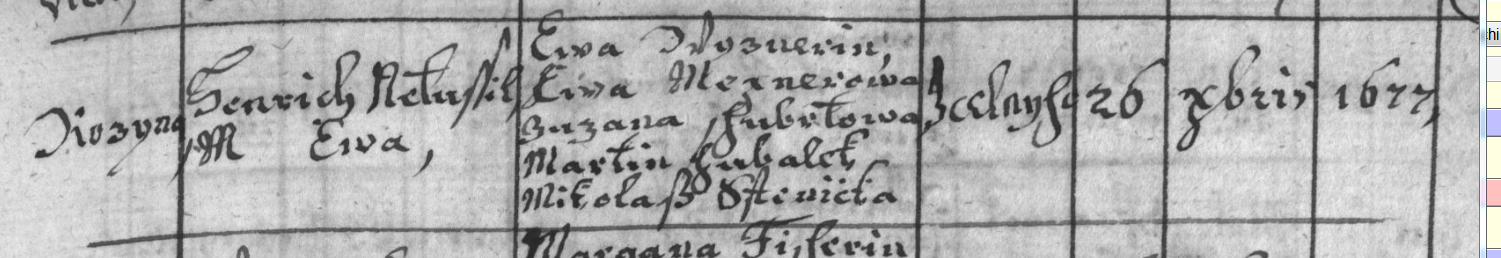 Rozyna
Henrich Netussil
M Ewa,
Ewa Woznerin,
Ewa Mexnerowa
Zuzana Hubrtowa
Martin Hubalek
Mikolaß
26 xbris 1677,
Margana Fisserin